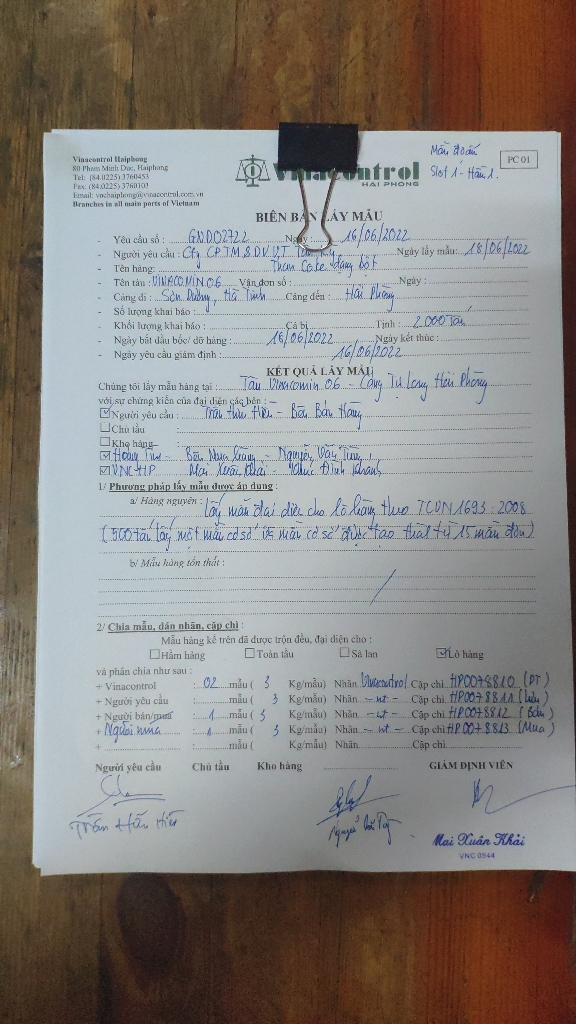 Vinacontrol Haiphong
80 Pham Minh Duc, Haiphong
Tel: (84.0225) 3760453
Fax: (84.0225) 3760103
Email: vnchaiphong@vinacontrol.com.vn
Branches in all main parts of Vietnam
Vinacontrol
HAI PHONG
Slot 1 - Hầm 1.
PC 01
BIÊN BẢN LẤY MẪU
- Yêu cầu số : GND02722 Ngày : 16/06/2022
- Người yêu cầu : Cty CP.TM & DV.VT Ngày lấy mẫu: 18/06/2022
- Tên hàng: Than Coke dạng bột
- Tên tàu : VINACOMIN 06 Vận đơn số : Ngày :
- Cảng đi : Sơn Dương, Hà Tĩnh Cảng đến : Hải Phòng
- Số lượng khai báo :
- Khối lượng khai báo : Cả bì Tịnh : 2.000 Tấn
- Ngày bắt đầu bốc/ dỡ hàng : 16/06/2022 Ngày kết thúc :
- Ngày yêu cầu giám định : 16/06/2022
KẾT QUẢ LẤY MẪU
Chúng tôi lấy mẫu hàng tại : Tàu Vinacomin 06 - Cảng Tự Long Hải Phòng
với sự chứng kiến của đại diện các bên :
Người yêu cầu : Trần Hữu Hiến - Bên Bán Hàng
Chủ tàu :
Kho hàng :
- Bên Mua Hàng - Nguyễn Văn Tùng
VNC HP Mai Xuân Khải - Đình Khánh
1/ Phương pháp lấy mẫu được áp dụng :
a/ Hàng nguyên : Lấy mẫu đại diện cho lô hàng theo TCVN 1693 : 2008
(500 tấn lấy một mẫu cơ sở và mẫu cơ sở được tạo thành từ 15 mẫu đơn)
b/ Mẫu hàng tổn thất :
2/ Chia mẫu, dán nhãn, cặp chì :
Mẫu hàng kể trên đã được trộn đều, đại diện cho :
Hầm hàng Toàn tàu Sà lan Lô hàng
và phân chia như sau :
+ Vinacontrol : 02 mẫu ( 3 Kg/mẫu) Nhãn Vinacontrol Cặp chì HP0078810 (PT)
+ Người yêu cầu : mẫu ( 3 Kg/mẫu) Nhãn - nt - Cặp chì HP0078811 (Lưu)
+ Người bán/mua : 1 mẫu ( 3 Kg/mẫu) Nhãn - nt - Cặp chì HP0078812 (Bán)
+ Người mua 1 mẫu ( 3 Kg/mẫu) Nhãn - nt - Cặp chì HP0078813 (Mua)
+ : mẫu ( Kg/mẫu) Nhãn Cặp chì
Người yêu cầu Chủ tàu Kho hàng GIÁM ĐỊNH VIÊN
Trần Hữu Hiến
Mai Xuân Khải
VNC 0544